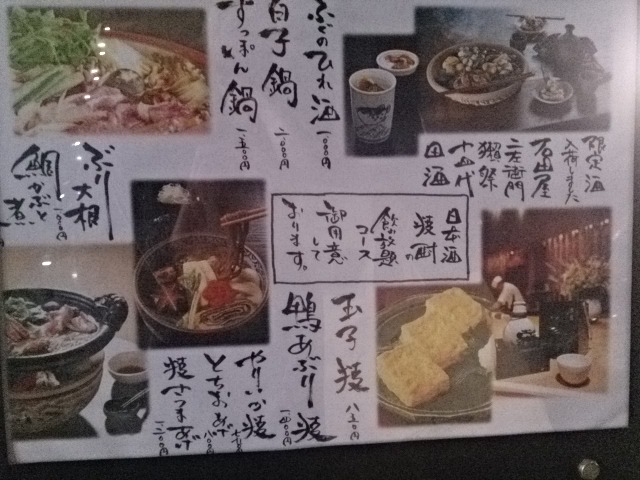 ふぐのひれ酒 一、〇〇〇円
白子鍋 二、〇〇〇円
すっぽん鍋 一、五〇〇円
限定酒
入荷しました
石田屋
二左衛門
獺祭
十四代
田酒
ぶり大根
鯛かぶと煮
日本酒
焼酎の
飲み放題
コース
御用意
して
おります。
玉子焼 八五〇円
鴨あぶり焼
やりいか焼
とちおあげ 八〇〇円
焼さつまあげ